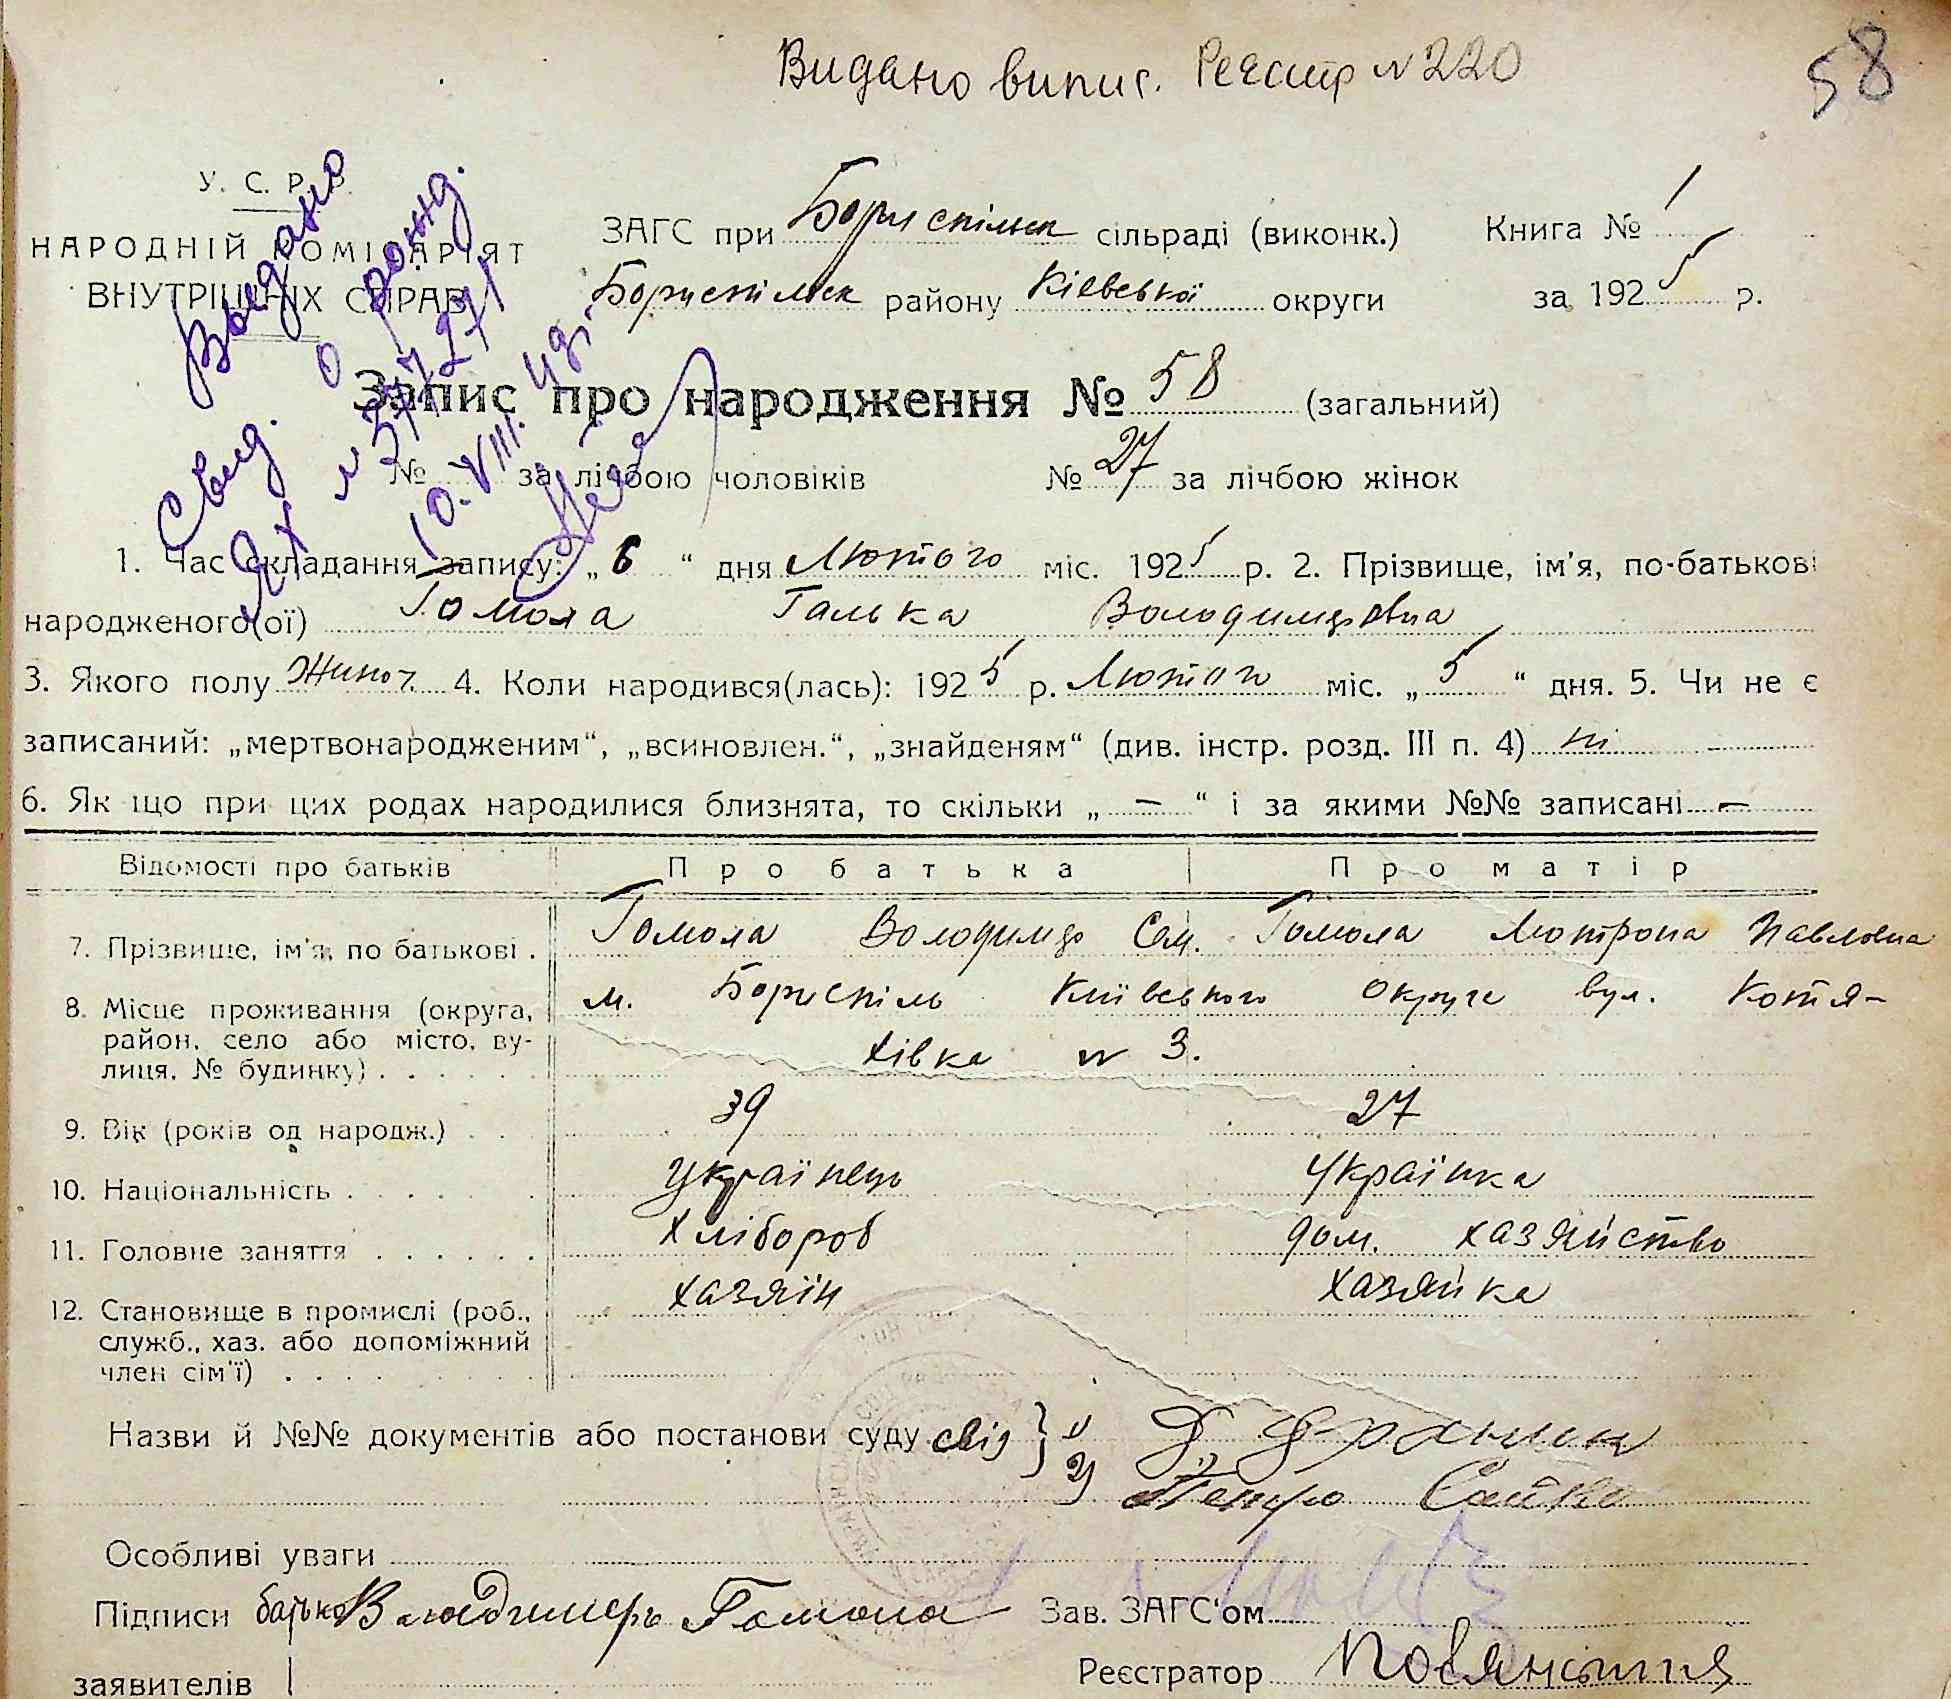 Видано випис. Реєстр №220
58
У. С. Р. Р.
НАРОДНІЙ КОМІСАРІЯТ
ВНУТРІШНІХ СПРАВ
ЗАГС при Бориспільск сільраді (виконк.) Книга № 1
Бориспільск району Київської округи за 1925 р.
Видано
Свид. о рожд.
10. VIII.
Запис про народження № 58 (загальний)
№ за лічбою чоловіків № 27 за лічбою жінок
1. Час складання запису: „6“ дня Лютого міс. 1925 р. 2. Прізвище, ім'я, по-батькові
народженого(ої) Гомола Галька Володимировна
3. Якого полу Жиноч. 4. Коли народився(лась): 1925 р. Лютого міс. „5“ дня. 5. Чи не є
записаний: „мертвонародженим“, „всиновлен.“, „знайденям“ (див. інстр. розд. III п. 4) ні
6. Як що при цих родах народилися близнята, то скільки „ — “ і за якими №№ записані —
Відомості про батьків Про батька Про матір
7. Прізвище, ім'я, по батькові . Гомола Володимир Сам. Гомола Мотрона Павловна
8. Місце проживання (округа, м. Бориспіль Київського округа вул. Котя-
район, село або місто, ву- хівка № 3.
лиця, № будинку) . . . . .
9. Вік (років од народж.) . . 39 27
10. Національність . . . . . українець українка
11. Головне заняття . . . . . . хлібороб дом. хазяйство
12. Становище в промислі (роб., хазяїн хазяйка
служб., хаз. або допоміжний
член сім'ї) . . . .
Назви й №№ документів або постанови суду свід } 1
2) Петро
Особливі уваги
Підписи батько Владимеръ Гомола Зав. ЗАГС'ом
заявителів Реєстратор